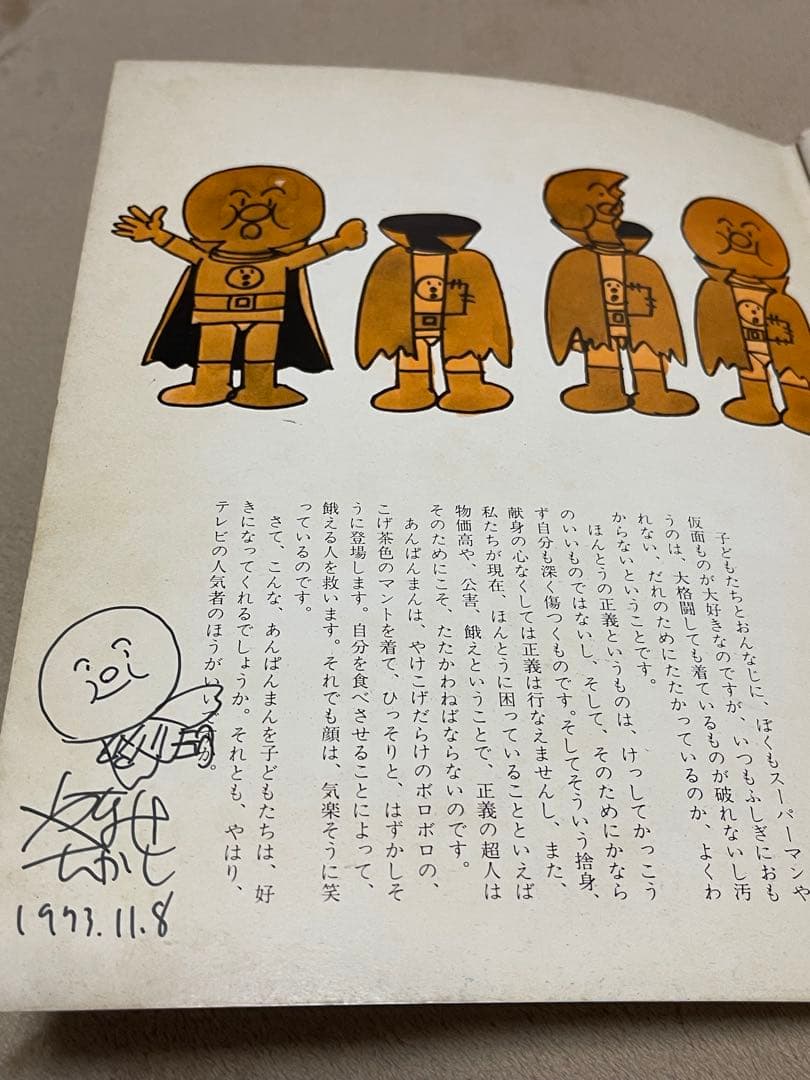 子どもたちとおんなじに、ぼくもスーパーマンや
仮面ものが大好きなのですが、いつもふしぎにおも
うのは、大格闘しても着ているものが破れないし汚
れない、だれのためにたたかっているのか、よくわ
からないということです。
ほんとうの正義というものは、けっしてかっこう
のいいものではないし、そして、そのためにかなら
ず自分も深く傷つくものです。そしてそういう捨身、
献身の心なくしては正義は行なえませんし、また、
私たちが現在、ほんとうに困っていることといえば
物価高や、公害、餓えということで、正義の超人は
そのためにこそ、たたかわねばならないのです。
あんぱんまんは、やけこげだらけのボロボロの、
こげ茶色のマントを着て、ひっそりと、はずかしそ
うに登場します。自分を食べさせることによって、
餓える人を救います。それでも顔は、気楽そうに笑
っているのです。
さて、こんな、あんぱんまんを子どもたちは、好
きになってくれるでしょうか。それとも、やはり、
テレビの人気者のほうがいい か。
やなせ
たかし
1973.11.8